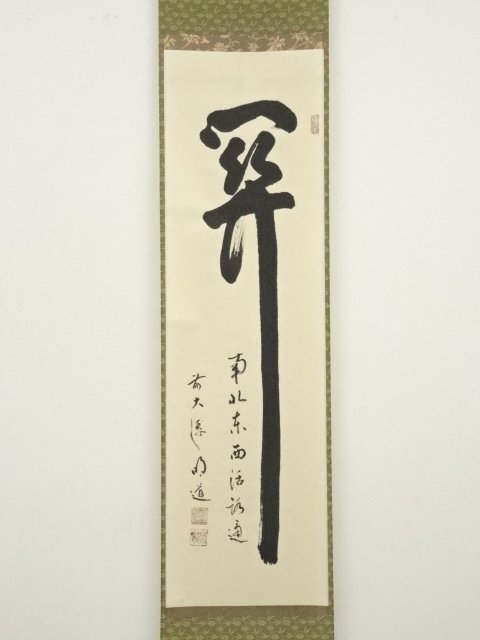 関
南北東西活路通
前大徳明道